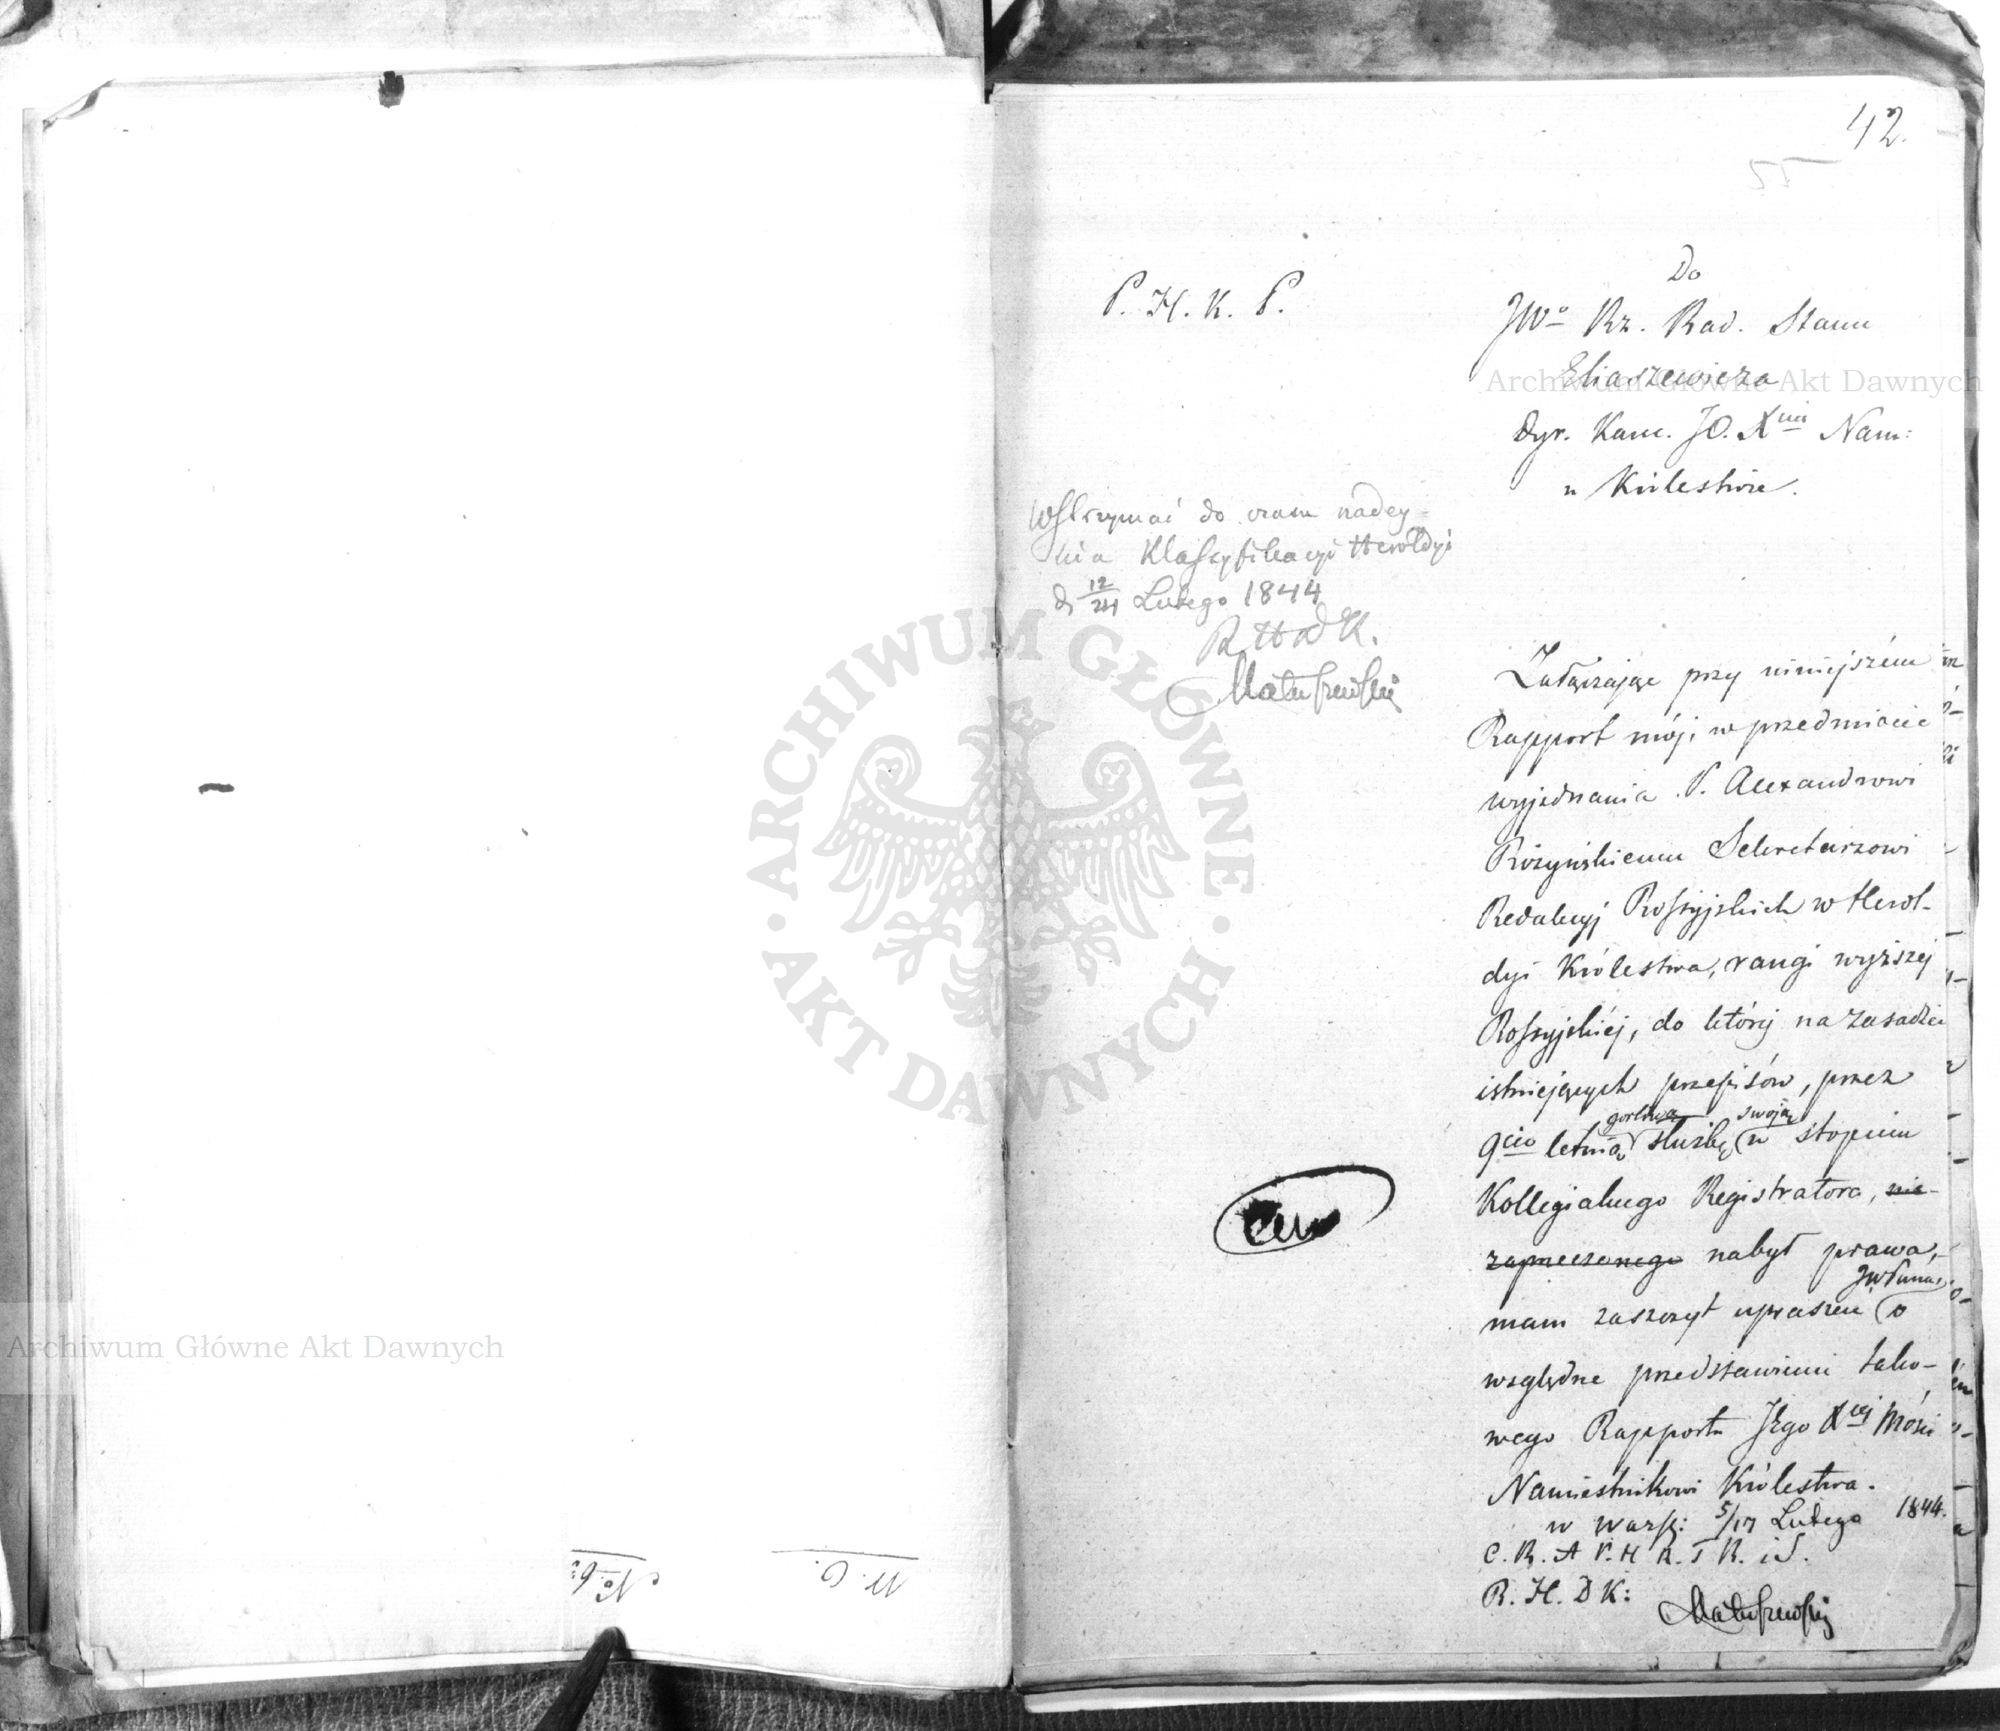 42.
55
P. H. K. P.
Do
JWº Rz. Rad. Stanu
Eliaszewicza
Dyr. Kanc. JO. Xcia Nam:
w Królestwie.
Wstrzymać do czasu nadey-
ścia Klassyfikacyi Heroldyi
d. 12/24 Lutego 1844
R H D K.
Matuszewski
Załączając przy niniejszém
Rapport mój, w przedmiocie
wyjednania P. Alexandrowi
Różyńskiemu Sekretarzowi
Redakcyj Rossyjskich w Herol-
dyi Królestwa, rangi wyższej
Rossyjskiéj, do któréj na zasadzie
istniejących przepisów, przez
gorliwą swoją
9cio letnią służbę w stopniu
Kollegialnego Registratora, nie-
zaprzeczonego nabył prawa,
JW Pana,
mam zaszczyt upraszać o
względne przedstawienie tako-
wego Rapportu Jego Xcej Mości
Namiestnikowi Królestwa.
w Warsz: 5/17 Lutego 1844.
C. R. A P. H R. T R. i S.
R. H. D K:
Matuszewski
ARCHIWUM GŁÓWNE · AKT DAWNYCH ·
Archiwum Główne Akt Dawnych
Archiwum Główne Akt Dawnych